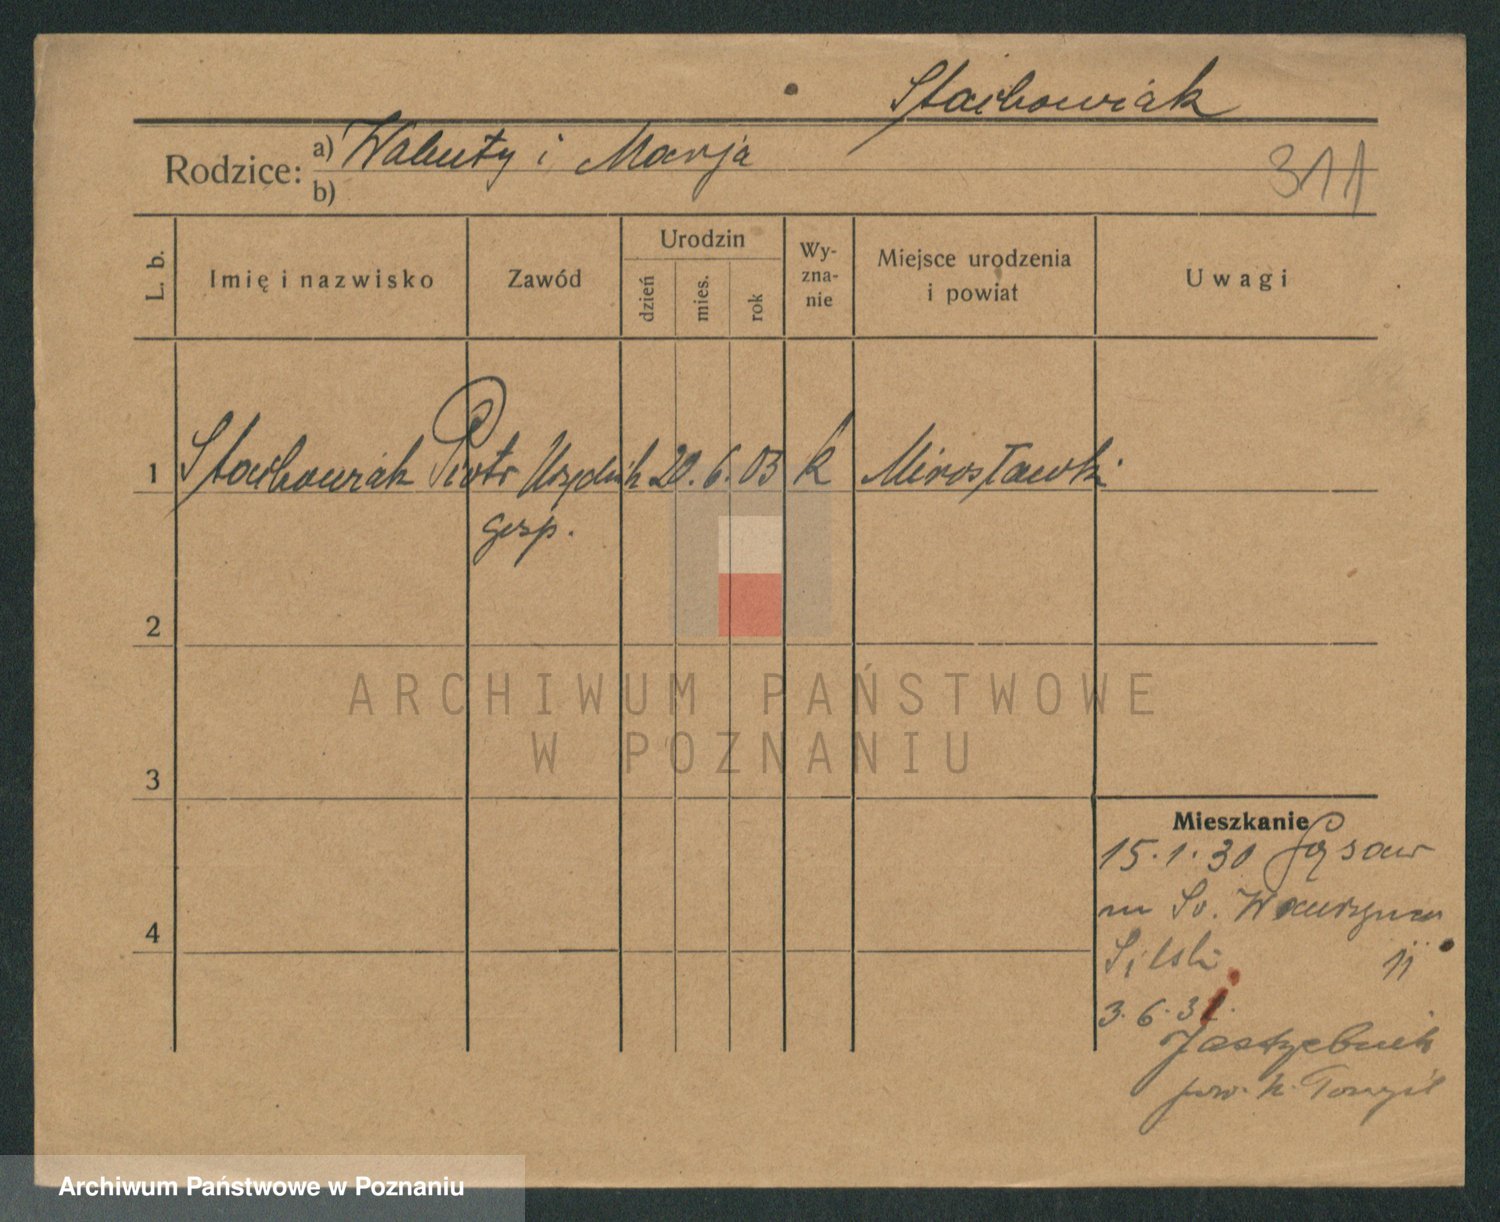 Stachowiak
Rodzice: a) Walenty i Marja
b)
311
L. b.
Imię i nazwisko
Zawód
Urodzin
dzień
mies.
rok
Wy-
zna-
nie
Miejsce urodzenia
i powiat
Uwagi
1 Stachowiak Piotr Urzędnik 20. 6. 03 k Mirosławki
gosp.
2
ARCHIWUM PAŃSTWOWE
W POZNANIU
3
Mieszkanie
15.1.30 Gąsaw
4
3. 6. 31.
Jastrzębnik
pow. N. Tomyśl
Archiwum Państwowe w Poznaniu